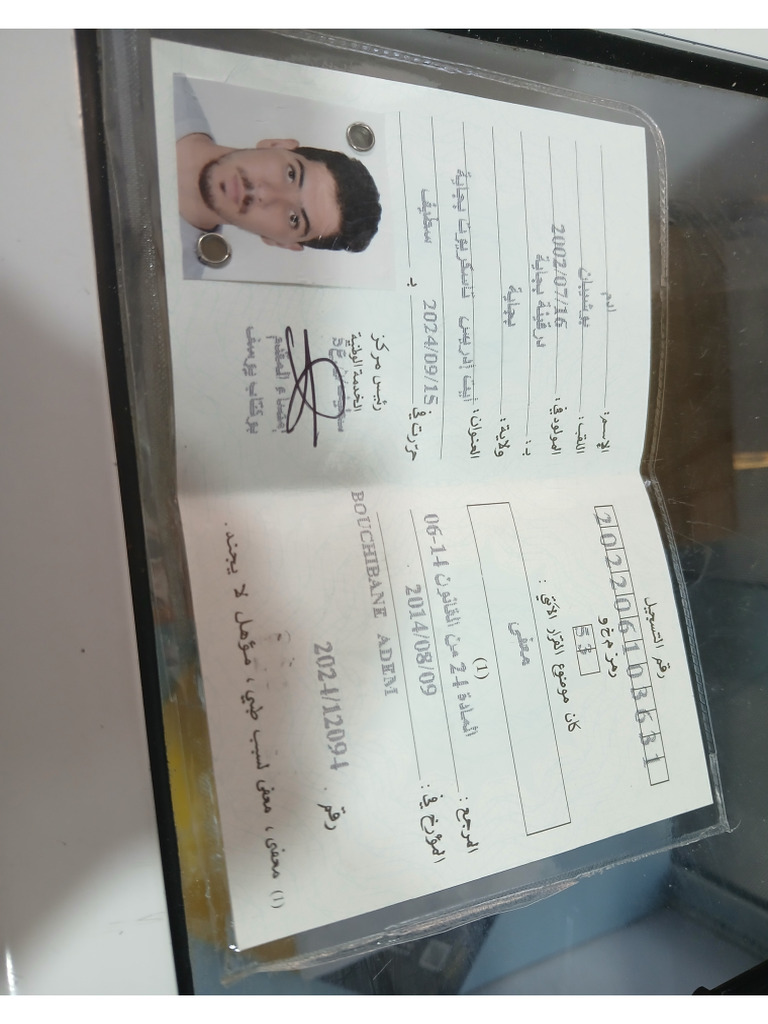 الإسم: ادم
اللقب: بوشيبان
المولود في: 2002/07/16
ب: درقينة بجاية
ولاية: بجاية
العنوان: أيت إدريس تاسكريوت بجاية
حرّرت في 2024/09/15 ب سطيف
رئيس مركز
الخدمة الوطنية
إمضاء المقدم
بوكتاب يوسف
رقم التسجيل
202206103631
رمز م خ و
53
كان موضوع القرار الآتي:
معفى
(1)
المرجع: المادة 24 من القانون 14-06
المؤرخ في: 2014/08/09
BOUCHIBANE ADEM
رقم. 2024/12094
(1) معفى، معفى لسبب طبي، مؤهل لا يجند.